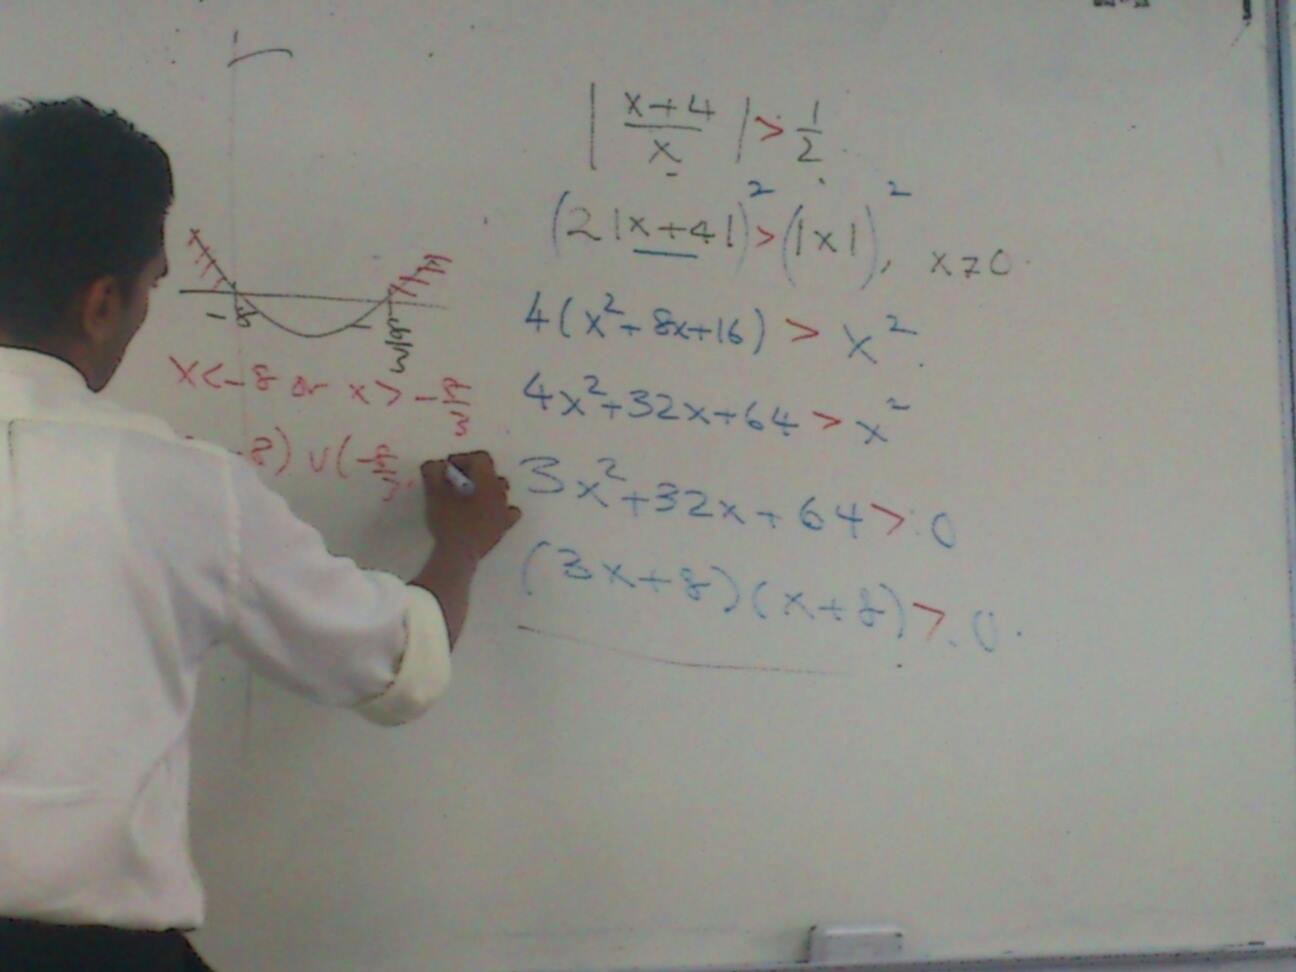 |x+4/x| > 1/2
(2|x+4|)² > (|x|)², x≠0.
4(x²+8x+16) > x².
4x²+32x+64 > x²
3x²+32x+64 > 0
(3x+8)(x+8) > 0.
-8 -8/3
x<-8 or x>-8/3
-8) ∪ (-8/3,